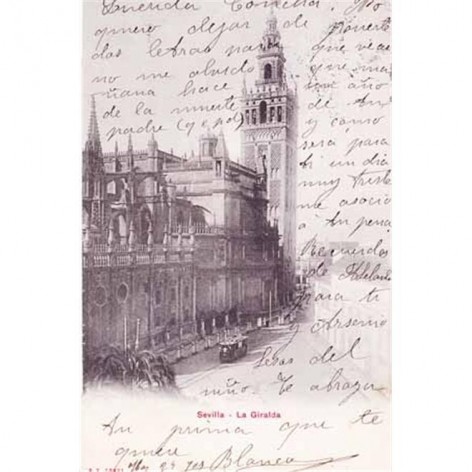 Querida Concha: No
quiero dejar de ponerte
dos letras para que veas
no me olvido que ma-
ñana hace un año
de la muerte de tu
padre (q e p d) y como
será para
ti un día
muy triste
me asocio
á tu pena
Recuerdos
de Adelante
para ti
y Arsenio
besos del
niño. Te abraza
Sevilla - La Giralda
Tu prima que te
quiere
23 903 Blanca